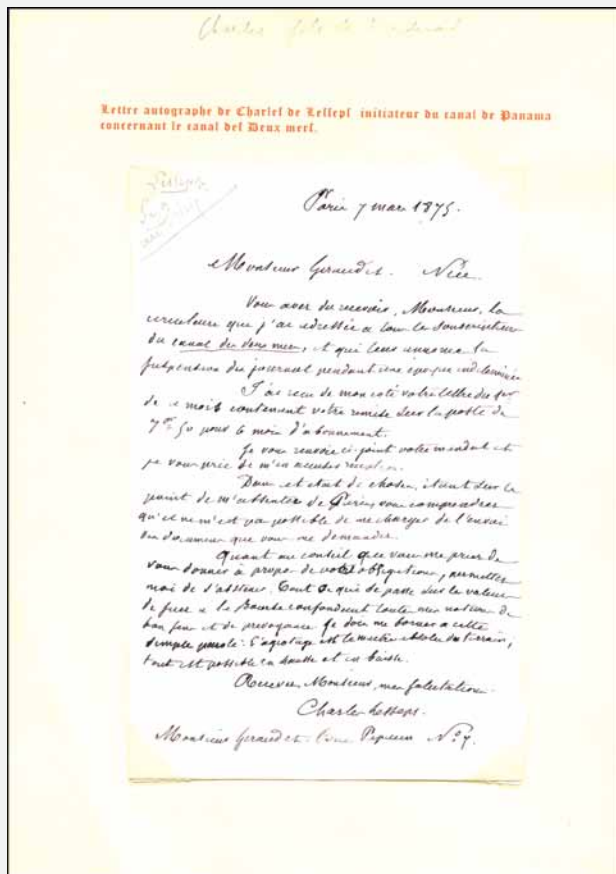 Charles fils de
Lettre autographe de Charles de Lesseps initiateur du canal de Panama
concernant le canal des Deux mers.
Lesseps
Paris 7 mars 1875.
Monsieur Geraudet. Nice
Vous avez du recevoir, Monsieur, la
circulaire que j'ai adressée a tous les souscripteurs
du canal des deux mers, et qui leur annonce la
suspension du journal pendant une époque indéterminée
J'ai recu de mon coté votre lettre du 1er
de ce mois contenant votre remise sur la poste de
7 fr 50 pour 6 mois d'abonnement.
Je vous renvoie ci-joint votre mandat et
je vous prie de m'en accuser reception.
Dans cet etat de choses, étant sur le
point de m'absenter de Paris, vous comprendrez
qu'il ne m'est pas possible de me charger de l'envoi
du document que vous me demandez.
Quant au conseil que vous me priez de
vous donner à propos de vos obligations, permettez
moi de m'abstenir. Tout ce qui se passe sur les valeurs
de Suez a la Bourse confondent toutes mes notions de
bon sens et de prévoyance. Je dois me borner a cette
simple parole: L'agiotage est le maitre absolu du terrain,
tout est possible en hausse et en baisse.
Recevez, Monsieur, mes salutations.
Charles Lesseps.
Monsieur Geraudet No 7.